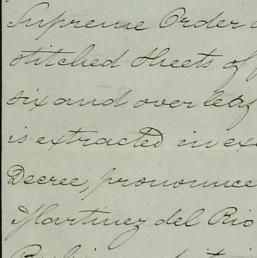 Supreme Order
stitched sheets of
six and over leaf
is extracted in
Decree, pronounce
Martinez del Rio